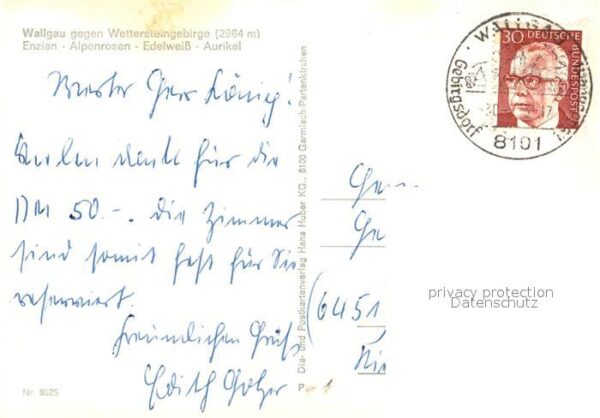 Wallgau gegen Wettersteingebirge (2964 m)
Enzian - Alpenrosen - Edelweiß - Aurikel
Werter Herr König!
Vielen Dank für die
DM 50.-. die Zimmer
sind somit fest für Sie
reserviert.
Freundlichen Gruß
Edith
Nr. 8525
Dia- und Postkartenverlag Hans Huber KG., 8100 Garmisch-Partenkirchen
(6451
WALLGAU
Gebirgsdorf
8101
30 DEUTSCHE
BUNDESPOST
privacy protection
Datenschutz